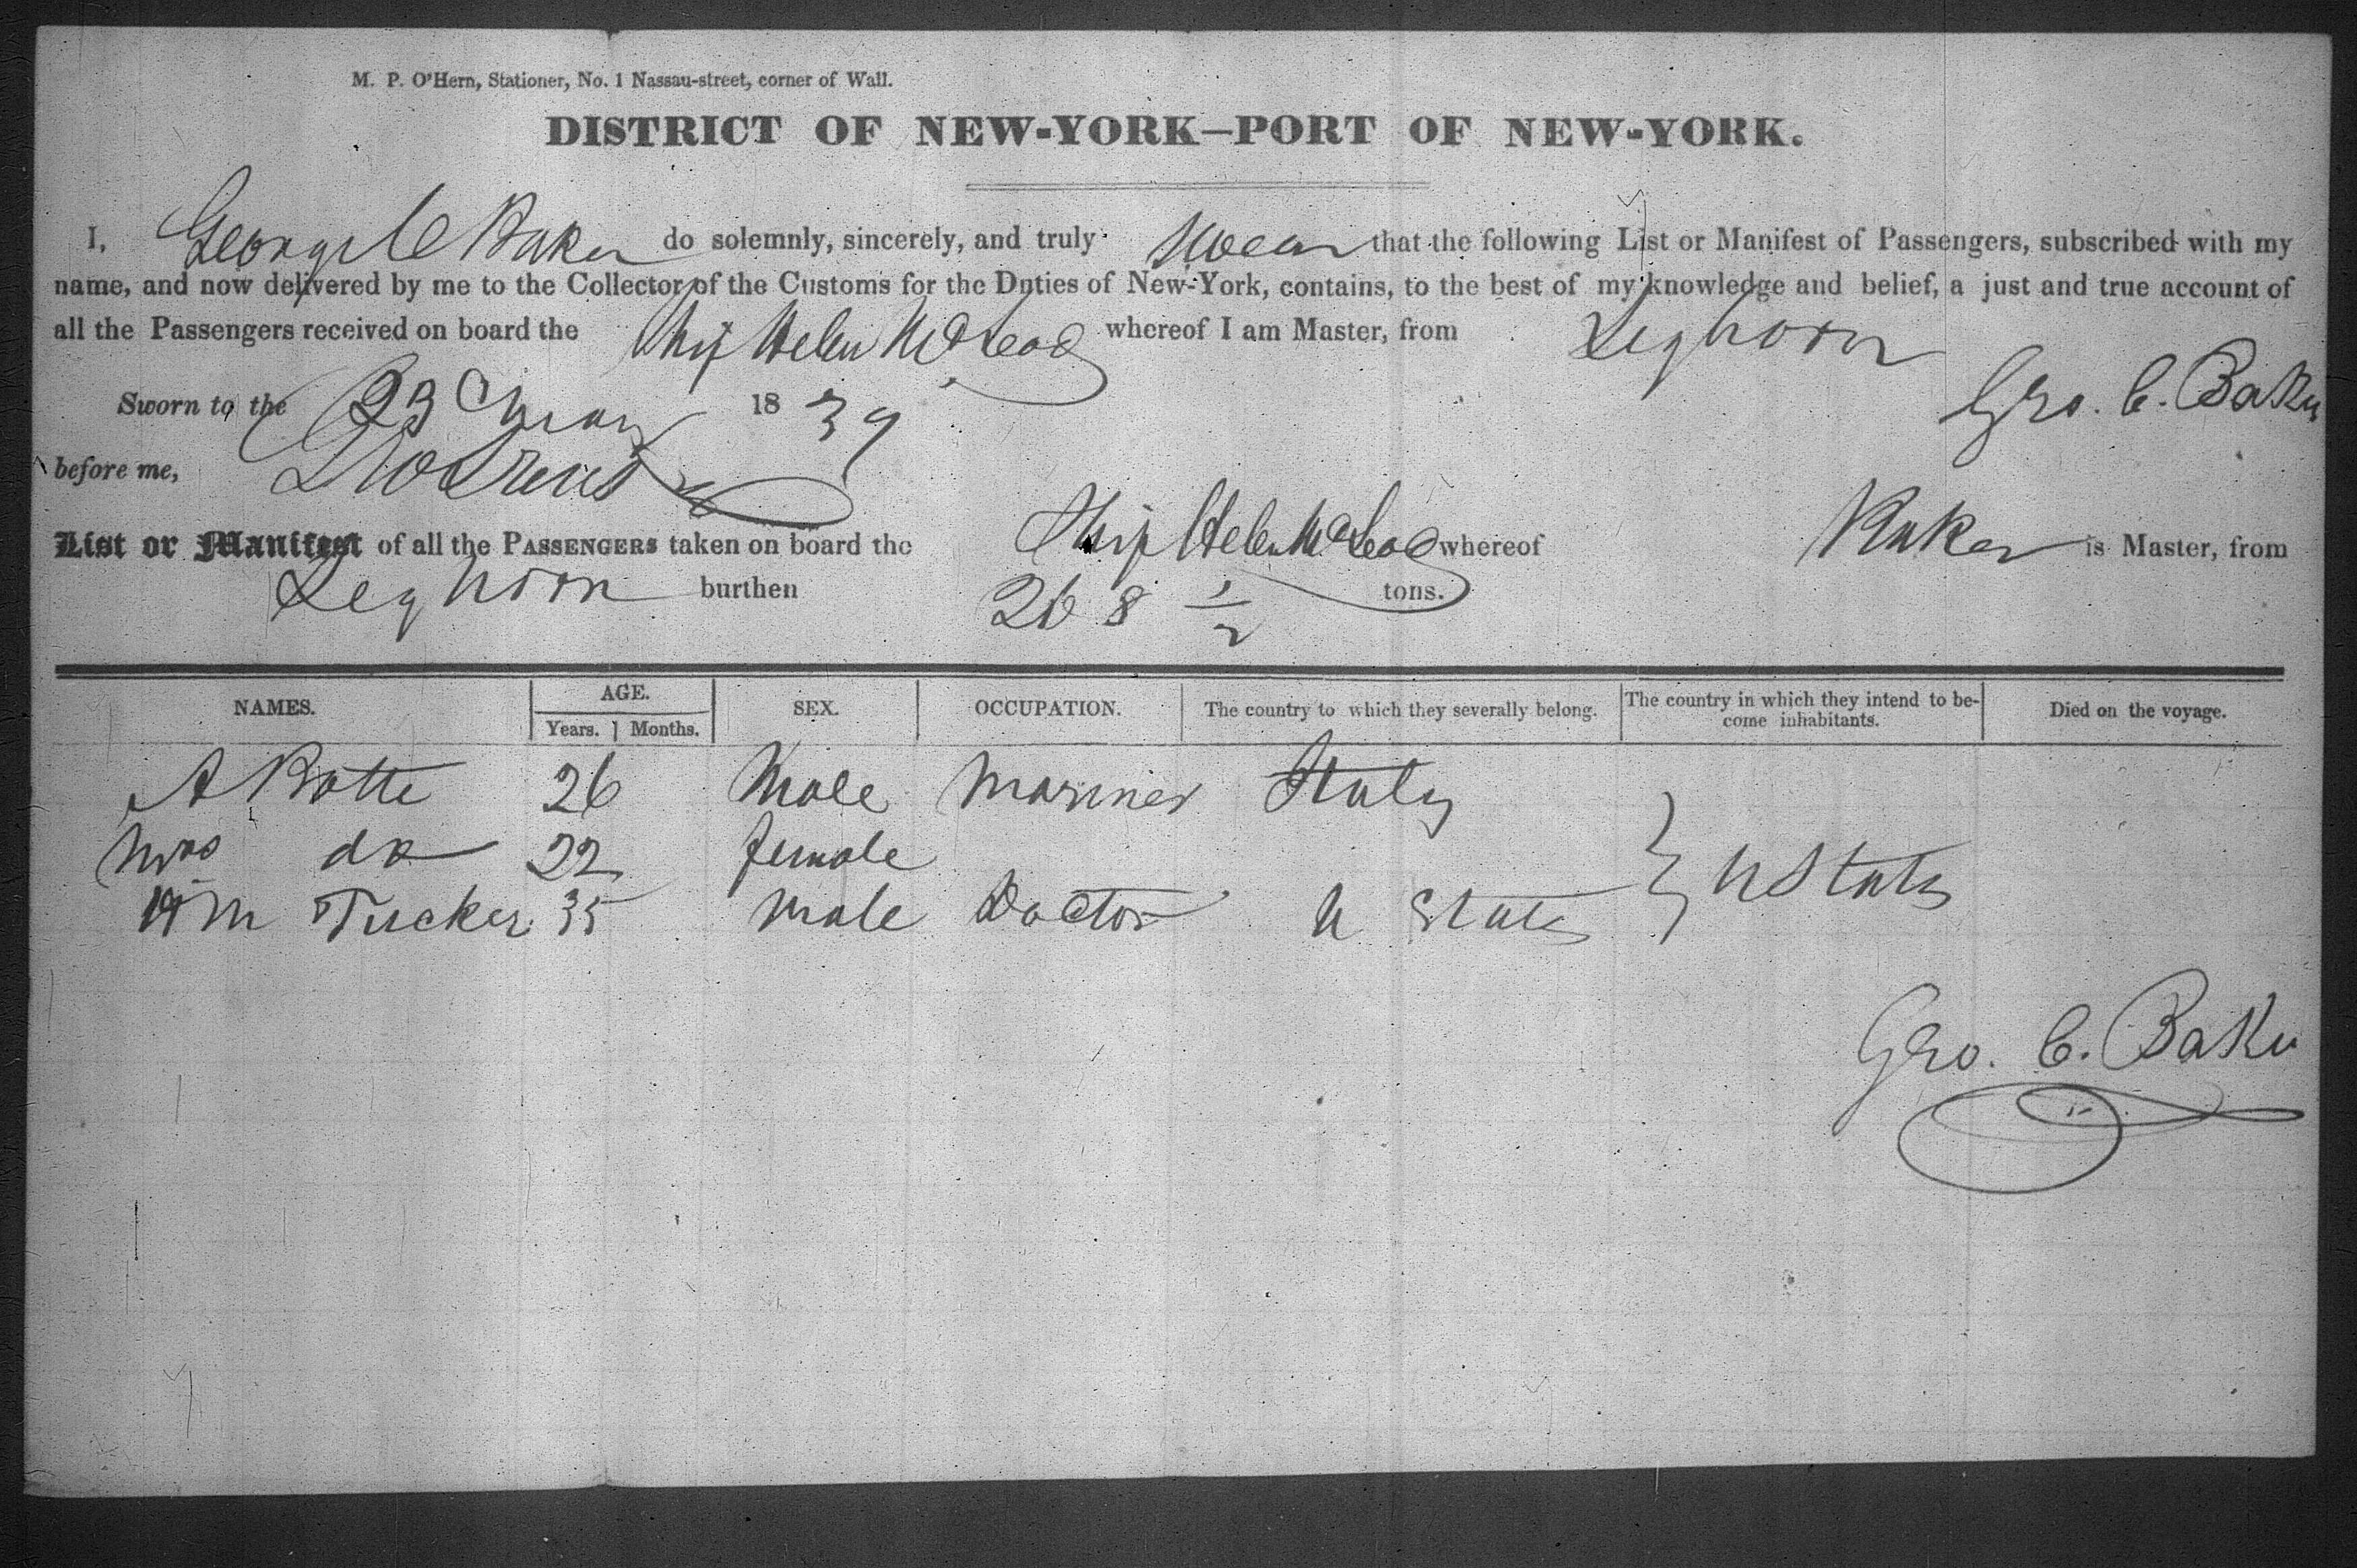 M. P. O'Hern, Stationer, No. 1 Nassau-street, corner of Wall.
DISTRICT OF NEW-YORK—PORT OF NEW-YORK.
I, George C Baker do solemnly, sincerely, and truly swear that the following List or Manifest of Passengers, subscribed with my
name, and now delivered by me to the Collector of the Customs for the Duties of New-York, contains, to the best of my knowledge and belief, a just and true account of
all the Passengers received on board the Ship Helen McLeod whereof I am Master, from Leghorn
Sworn to the 23 May 1839 Geo. C. Baker
before me,
List or Manifest of all the PASSENGERS taken on board the Ship Helen McLeod whereof Baker is Master, from
Leghorn burthen 268 1/2 tons.
NAMES. AGE. SEX. OCCUPATION. The country to which they severally belong. The country in which they intend to become inhabitants. Died on the voyage.
Years. Months.
A Botte 26 Male Mariner Italy
Mrs do 22 female
Wm Tucker 35 Male Doctor U States } U States
Geo. C. Baker